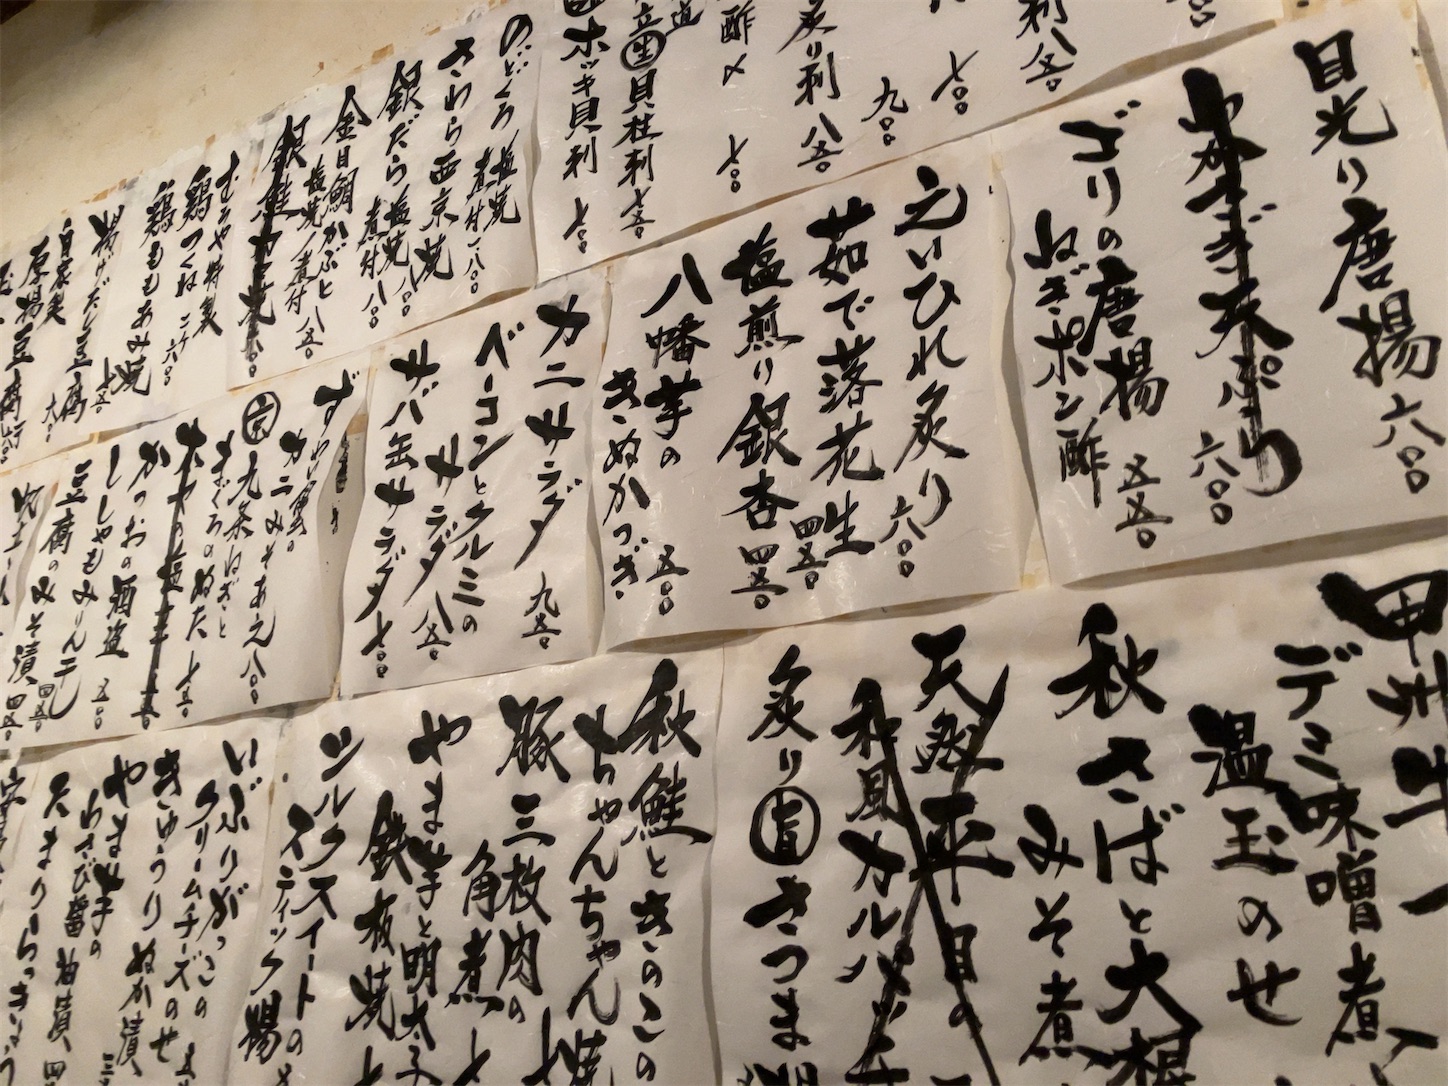 目光り唐揚 六〇〇
わかさぎ天ぷら 六〇〇
ゴリの唐揚
ねぎポン酢 五五〇
えいひれ炙り 六〇〇
茹で落花生 四五〇
塩煎り銀杏 四五〇
八幡芋の
きぬかつぎ 五五〇
カニサラダ 九五〇
ベーコンとクルミの
サラダ 八五〇
サバ缶サラダ 七〇〇
炙り刺 八五〇
酢〆 七〇〇
貝柱刺 七五〇
ホッキ貝刺 七〇〇
のどぐろ 塩焼
煮付 一、八〇〇
さわら西京焼
銀だら 塩焼 八〇〇
煮付 八〇〇
金目鯛かぶと
塩焼/煮付 八五〇
銀鮭カマ焼
むろや特製
鶏つくね 二ケ 六〇〇
鶏ももあみ焼 七五〇
揚げだし豆腐 六〇〇
自家製
厚揚豆腐
カニみそあえ 八〇〇
九条ねぎと
まぐろのぬた 七五〇
ホヤの塩辛
かつおの酒盗 五〇〇
ししゃもみりん干し
豆腐のみそ漬 四五〇
甲州牛
デミ味噌煮
温玉のせ
秋さばと大根
みそ煮
天然平目の
和風カルパッチョ
炙り さつま揚
秋鮭ときのこの
ちゃんちゃん焼
豚三枚肉の
角煮
やま芋と明太子
鉄板焼
シルクスイートの
スティック揚
いぶりがっこの
クリームチーズのせ
きゅうりぬか漬
やま芋の
わさび醤油漬